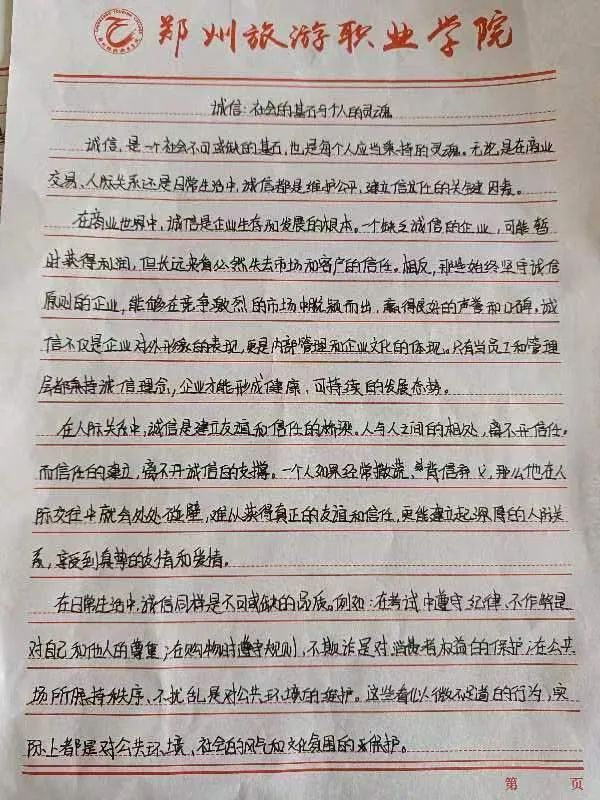 郑州旅游职业学院
诚信:社会的基石与个人的灵魂
诚信,是一个社会不可或缺的基石,也是每个人应当秉持的灵魂。无论是在商业
交易、人际关系还是日常生活中,诚信都是维护公平、建立信任的关键因素。
在商业世界中,诚信是企业生存和发展的根本。一个缺乏诚信的企业,可能暂
时获得利润,但长远来看必然失去市场和客户的信任。相反,那些始终坚守诚信
原则的企业,能够在竞争激烈的市场中脱颖而出,赢得良好的声誉和口碑。诚
信不仅是企业对外形象的表现,更是内部管理和企业文化的体现。只有当员工和管理
层都秉持诚信理念,企业才能形成健康、可持续的发展态势。
在人际关系中,诚信是建立友谊和信任的桥梁。人与人之间的相处,离不开信任。
而信任的建立,离不开诚信的支撑。一个人如果经常撒谎、背信弃义,那么他在人
际交往中就会处处碰壁,难以获得真正的友谊和信任,更能建立起深厚的人际关
系,享受到真挚的友情和爱情。
在日常生活中,诚信同样是不可或缺的品质。例如:在考试中遵守纪律、不作弊是
对自己和他人的尊重;在购物时遵守规则,不欺诈是对消费者权益的保护;在公共
场所保持秩序、不扰乱是对公共环境的维护。这些看似微不足道的行为,实
际上都是对公共环境、社会的风气和文化氛围的保护。
第 页